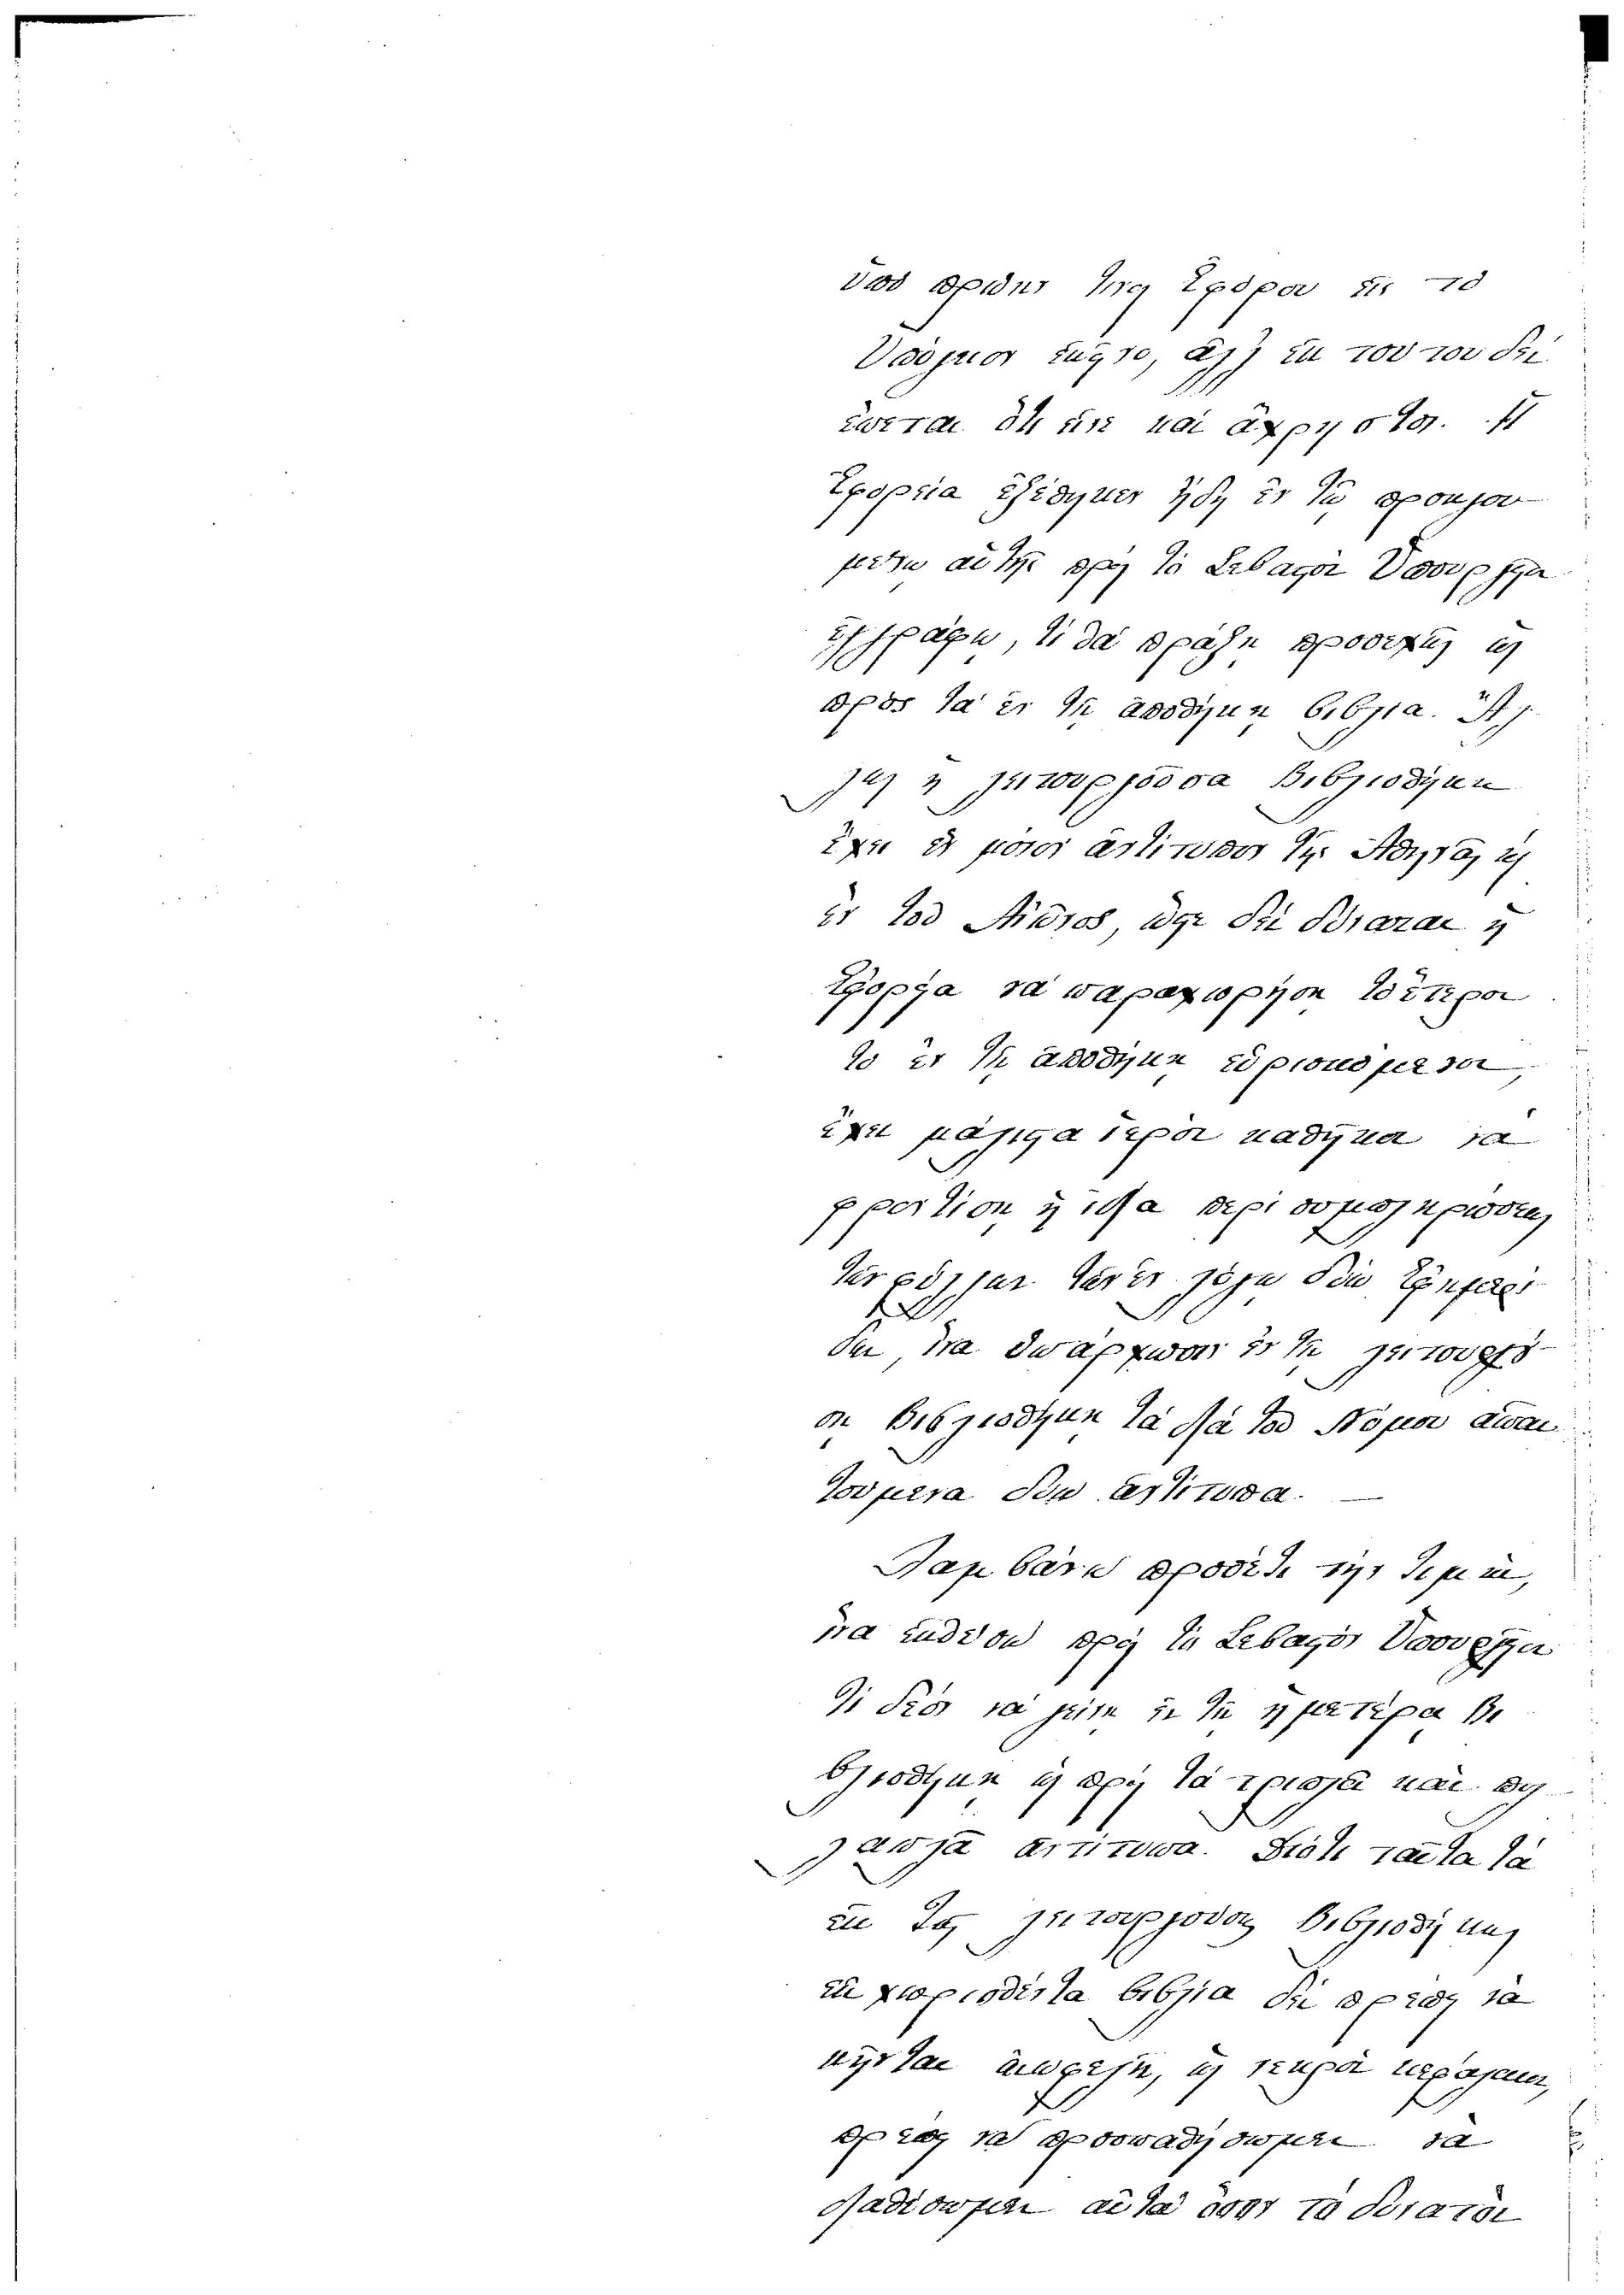 ὑπὸ πρώην τινα Ἐφόρου εἰς τὸ
Ὑπόγειον ἐκεῖνο, ἀλλ' ἐκ τούτου δὲν
ἕπεται ὅτι εἶνε καὶ ἄχρηστον. Ἡ
Ἐφορεία ἐξέθηκεν ἤδη ἐν τῷ προηγου-
μένῳ αὐτῆς πρὸς τὸ Σεβαστὸν Ὑπουργεῖον
ἐγγράφῳ, τί θὰ πράξῃ προσεχῶς ὡς
πρὸς τὰ ἐν τῇ ἀποθήκῃ βιβλία. Ἄλ-
λως ἡ λειτουργοῦσα Βιβλιοθήκη
ἔχει ἓν μόνον ἀντίτυπον τῆς Ἀθηνᾶς καὶ
ἓν τοῦ Αἰῶνος, ὥστε δὲν δύναται ἡ
Ἐφορεία νὰ παραχωρήσῃ τὸ ἕτερον
τὸ ἐν τῇ ἀποθήκῃ εὑρισκόμενον,
ἔχει μάλιστα ἱερὸν καθῆκον νὰ
φροντίσῃ ἡ ἰδία περὶ συμπληρώσεως
τῶν φύλλων τῶν ἐν λόγῳ δύω Ἐφημερί-
δων, ἵνα ὑπάρχωσιν ἐν τῇ λειτουργού-
σῃ Βιβλιοθήκῃ τὰ διὰ τοῦ Νόμου ἀπαι-
τούμενα δύω ἀντίτυπα. —
Λαμβάνω προσέτι τὴν τιμήν,
ἵνα ἐκθέσω πρὸς τὸ Σεβαστὸν Ὑπουργεῖον
τί δέον νὰ γείνῃ ἐν τῇ ἡμετέρᾳ Βι-
βλιοθήκῃ ὡς πρὸς τὰ τριπλᾶ καὶ πολ-
λαπλᾶ ἀντίτυπα. Διότι ταῦτα τὰ
ἐκ τῆς λειτουργούσης Βιβλιοθήκης
ἐκχωρισθέντα βιβλία δὲν πρέπει νὰ
κῆνται ἀνωφελῆ, ὡς νεκρὸν κεφάλαιον,
πρέπει νὰ προσπαθήσωμεν νὰ
διαθέσωμεν αὐτὰ ὅσον τὸ δυνατὸν